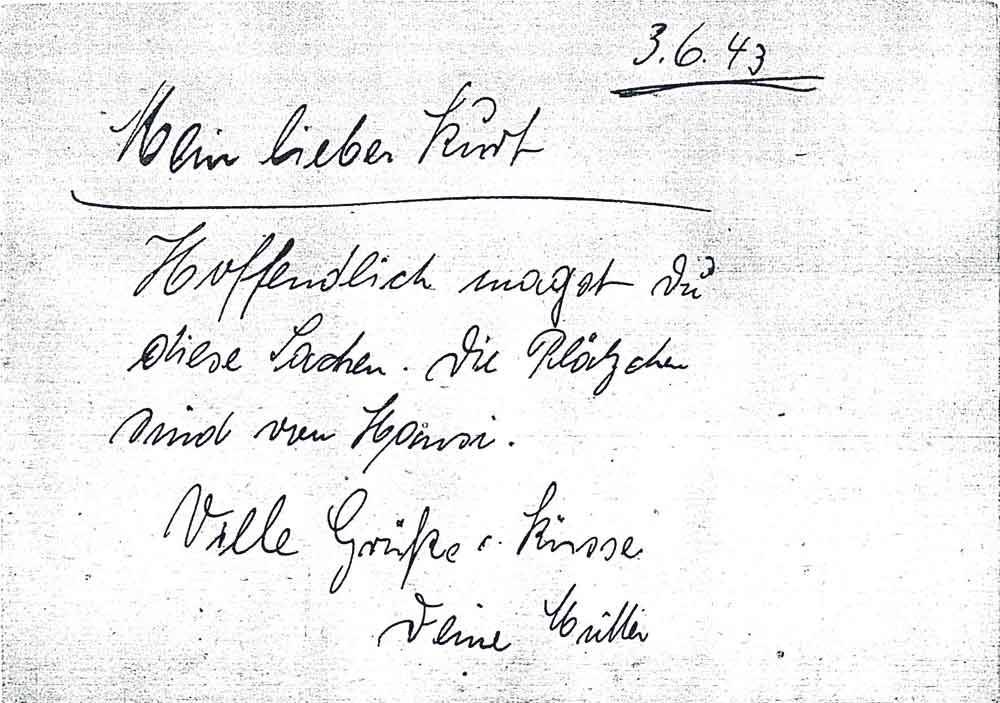 3.6.43
Mein lieber Kurt
Hoffendlich magst Du
diese Sachen. Die Plätzchen
sind von Hansi.
Viele Grüße u. Küsse
Deine Mutter